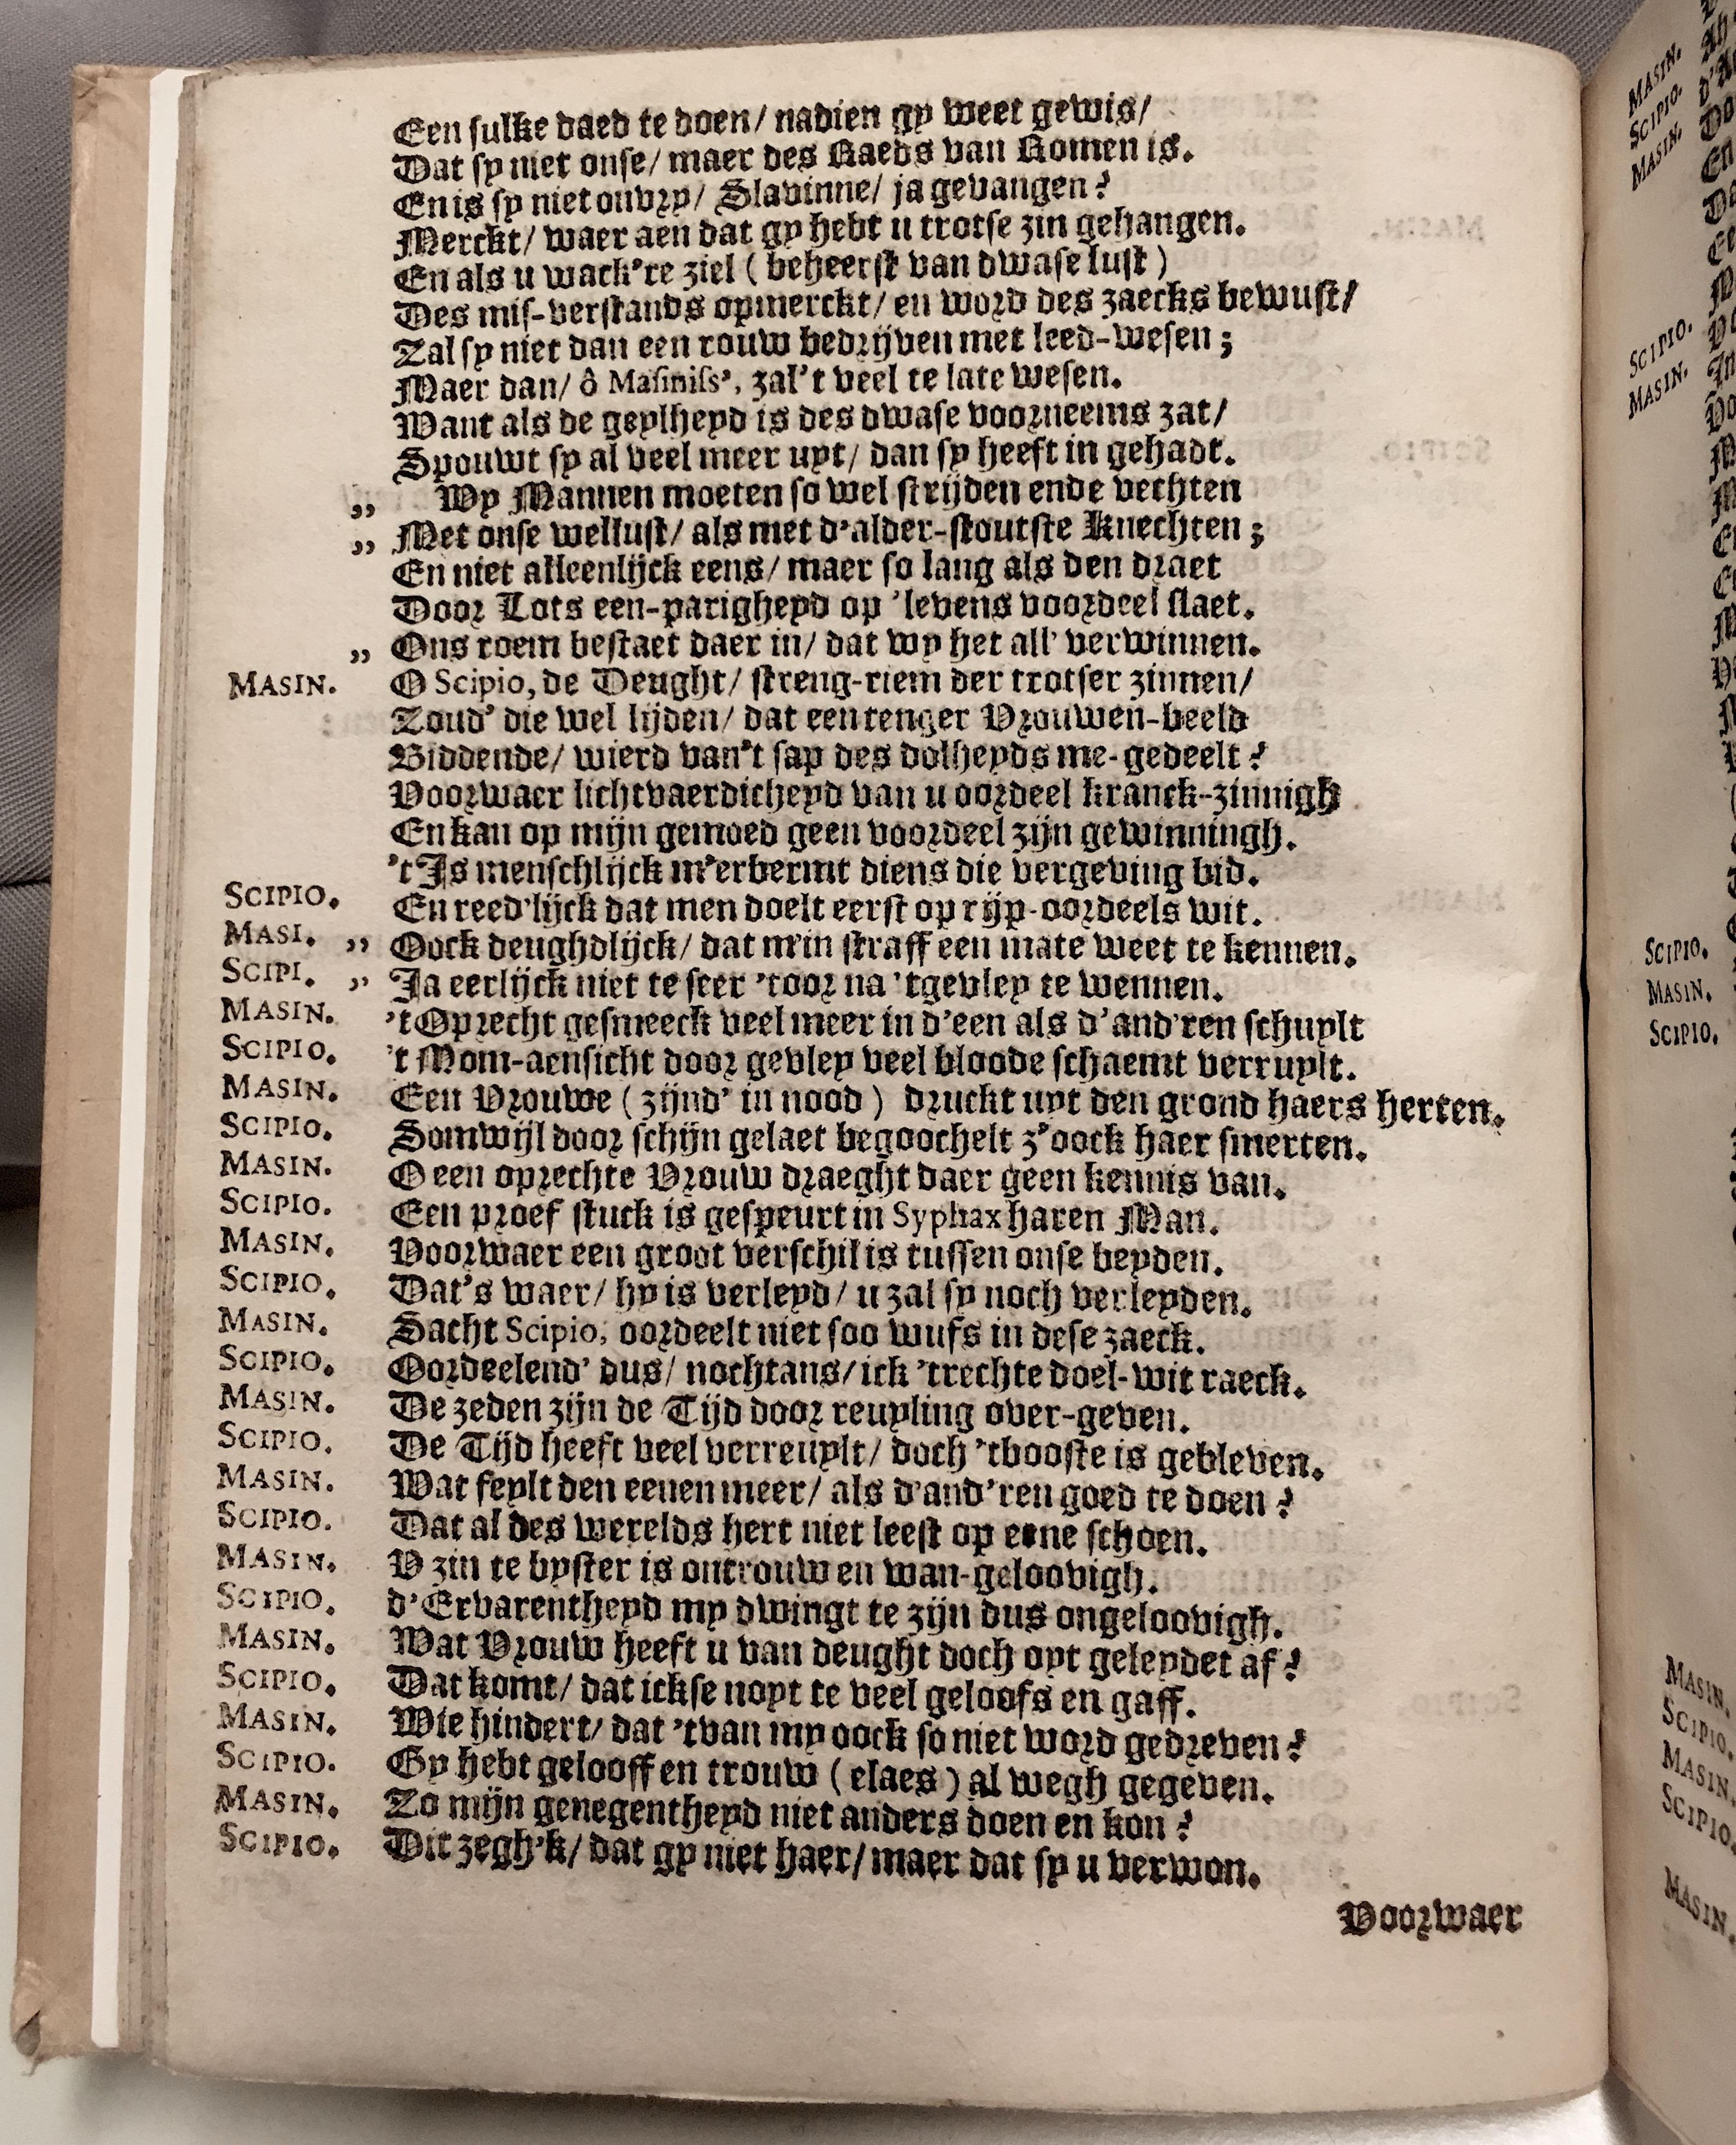 Een sulke daed te doen / nadien gy weet gewis /
Dat sy niet onse / maer des Raeds van Romen is.
En is sy niet onvry / Slavinne / ja gevangen?
Merckt / waer aen dat gy hebt u trotse zin gehangen.
En als u wack're ziel ( beheerst van dwase lust )
Des mis-verstands opmerckt / en word des zaecks bewust /
Zal sy niet dan een rouw bedrijven met leed-wesen ;
Maer dan / ô Masiniss', zal't veel te late wesen.
Want als de geylheyd is des dwase voorneems zat /
Spouwt sy al veel meer uyt / dan sy heeft in gehadt.
„ Wy Mannen moeten so wel strijden ende vechten
„ Met onse wellust / als met d'alder-stoutste Knechten ;
En niet alleenlijck eens / maer so lang als den draet
Door Lots een-parigheyd op 'levens voordeel slaet.
„ Ons roem bestaet daer in / dat wy het all' verwinnen.
MASIN. O Scipio, de Deught / streng-riem der trotser zinnen /
Zoud' die wel lijden / dat een tenger Vrouwen-beeld
Biddende / wierd van't sap des dolheyds me-gedeelt?
Voorwaer lichtvaerdicheyd van u oordeel kranck-zinnigh
En kan op mijn gemoed geen voordeel zijn gewinningh.
't Is menschlijck m'erbermt diens die vergeving bid.
SCIPIO. En reed'lijck dat men doelt eerst op rijp-oordeels wit.
MASI. „ Oock deughdlijck / dat m'in straff een mate weet te kennen.
SCIPI. „ Ja eerlijck niet te seer 'toor na 'tgevley te wennen.
MASIN. 't Oprecht gesmeeck veel meer in d'een als d'and'ren schuylt
SCIPIO. 't Mom-aensicht door gevley veel bloode schaemt verruylt.
MASIN. Een Vrouwe ( zijnd' in nood ) druckt uyt den grond haers herten.
SCIPIO. Somwijl door schijn gelaet begoochelt z'oock haer smerten.
MASIN. O een oprechte Vrouw draeght daer geen kennis van.
SCIPIO. Een proef stuck is gespeurt in Syphax haren Man.
MASIN. Voorwaer een groot verschil is tussen onse beyden.
SCIPIO. Dat's waer / hy is verleyd / u zal sy noch verleyden.
MASIN. Sacht Scipio, oordeelt niet soo wufs in dese zaeck.
SCIPIO. Oordeelend' dus / nochtans / ick 'trechte doel-wit raeck.
MASIN. De zeden zijn de Tijd door reuyling over-geven.
SCIPIO. De Tijd heeft veel verreuylt / doch 'tbooste is gebleven.
MASIN. Wat feylt den eenen meer / als d'and'ren goed te doen?
SCIPIO. Dat al des werelds hert niet leest op eene schoen.
MASIN. V zin te byster is ontrouw en wan-geloovigh.
SCIPIO. d'Ervarentheyd my dwingt te zijn dus ongeloovigh.
MASIN. Wat Vrouw heeft u van deught doch oyt geleydet af?
SCIPIO. Dat komt / dat ickse noyt te veel geloofs en gaff.
MASIN. Wie hindert / dat 'tvan my oock so niet word gedreven?
SCIPIO. Gy hebt gelooff en trouw ( elaes ) al wegh gegeven.
MASIN. Zo mijn genegentheyd niet anders doen en kon?
SCIPIO. Dit zegh'k / dat gy niet haer / maer dat sy u verwon.
Voorwaer
MASIN.
SCIPIO.
MASIN.
SCIPIO.
MASIN.
SCIPIO.
MASIN.
SCIPIO.
MASIN.
SCIPIO.
MASIN.
SCIPIO.
MASIN.